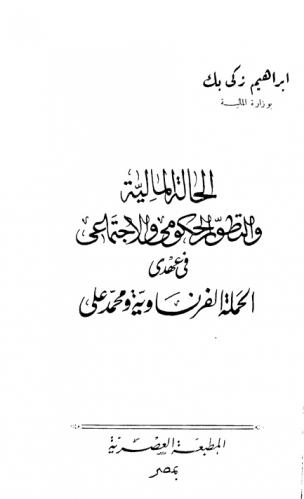 ابراهيم زكى بك
بوزارة المالية
الحالة المالية
والتطور الحكومى والاجتماعى
فى عهدى
الحملة الفرنساوية ومحمد على
المطبعة العصرية
بمصر